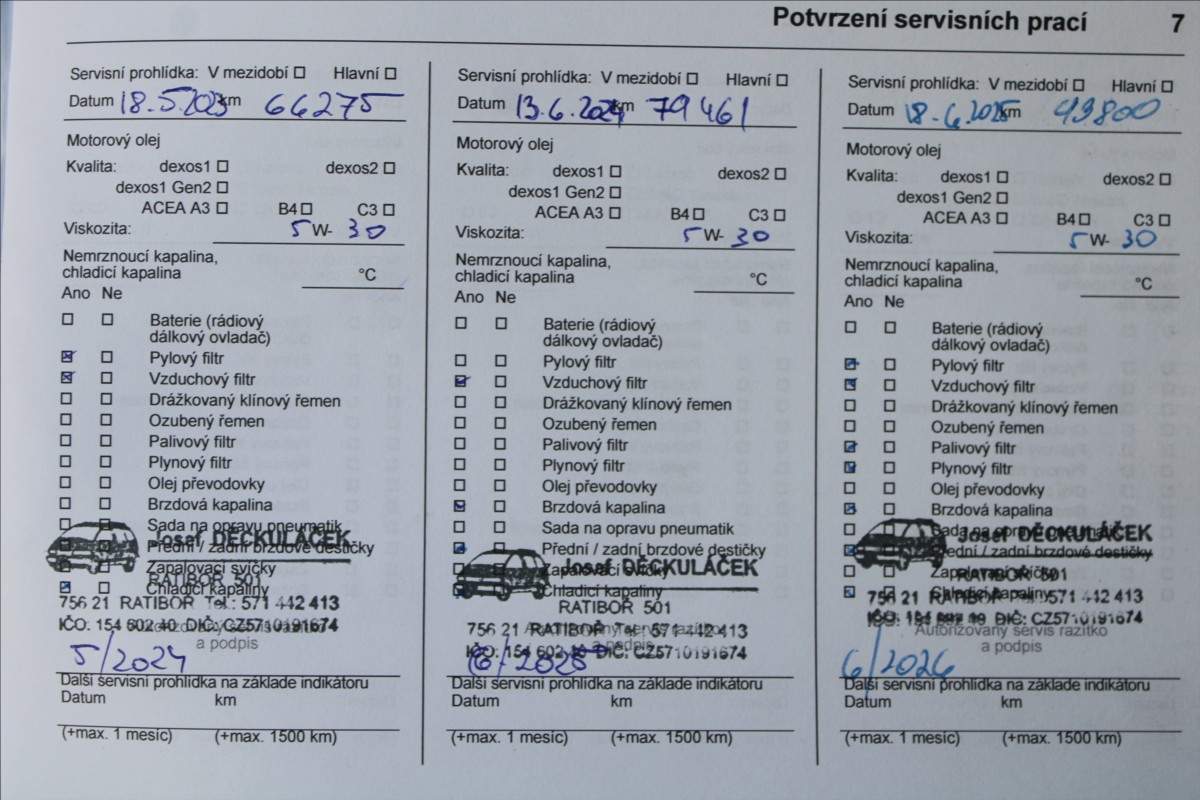 Potvrzení servisních prací 7
Servisní prohlídka: V mezidobí Hlavní
Datum 18.5.2023 km 66275
Motorový olej
Kvalita: dexos1 dexos2
dexos1 Gen2
ACEA A3 B4 C3
Viskozita: 5 W- 30
Nemrznoucí kapalina,
chladicí kapalina °C
Ano Ne
Baterie (rádiový
dálkový ovladač)
Pylový filtr
Vzduchový filtr
Drážkovaný klínový řemen
Ozubený řemen
Palivový filtr
Plynový filtr
Olej převodovky
Brzdová kapalina
Sada na opravu pneumatik
Josef DĚCKULÁČEK
Přední / zadní brzdové destičky
Zapalovací svíčky
RATIBOŘ 501
Chladicí kapaliny
756 21 RATIBOŘ Tel.: 571 442 413
IČO: 154 602 40 DIČ: CZ5710191674
a podpis
5/2024
Další servisní prohlídka na základe indikátoru
Datum km
(+max. 1 mesíc) (+max. 1500 km)
Servisní prohlídka: V mezidobí Hlavní
Datum 13.6.2024 km 79461
Motorový olej
Kvalita: dexos1 dexos2
dexos1 Gen2
ACEA A3 B4 C3
Viskozita: 5 W- 30
Nemrznoucí kapalina,
chladicí kapalina °C
Ano Ne
Baterie (rádiový
dálkový ovladač)
Pylový filtr
Vzduchový filtr
Drážkovaný klínový řemen
Ozubený řemen
Palivový filtr
Plynový filtr
Olej převodovky
Brzdová kapalina
Sada na opravu pneumatik
Přední / zadní brzdové destičky
Josef DĚCKULÁČEK
Zapalovací svíčky
Chladicí kapaliny
RATIBOŘ 501
756 21 RATIBOŘ Tel.: 571 442 413
IČO: 154 602 40 DIČ: CZ5710191674
6/2025
Další servisní prohlídka na základe indikátoru
Datum km
(+max. 1 mesíc) (+max. 1500 km)
Servisní prohlídka: V mezidobí Hlavní
Datum 18.6.2025 km 49800
Motorový olej
Kvalita: dexos1 dexos2
dexos1 Gen2
ACEA A3 B4 C3
Viskozita: 5 W- 30
Nemrznoucí kapalina,
chladicí kapalina °C
Ano Ne
Baterie (rádiový
dálkový ovladač)
Pylový filtr
Vzduchový filtr
Drážkovaný klínový řemen
Ozubený řemen
Palivový filtr
Plynový filtr
Olej převodovky
Brzdová kapalina
Sada na opravu pneumatik
Josef DĚCKULÁČEK
Přední / zadní brzdové destičky
Zapalovací svíčky
RATIBOŘ 501
Chladicí kapaliny
756 21 RATIBOŘ Tel.: 571 442 413
IČO: DIČ: CZ5710191674
Autorizovaný servis razítko
a podpis
6/2026
Další servisní prohlídka na základe indikátoru
Datum km
(+max. 1 mesíc) (+max. 1500 km)